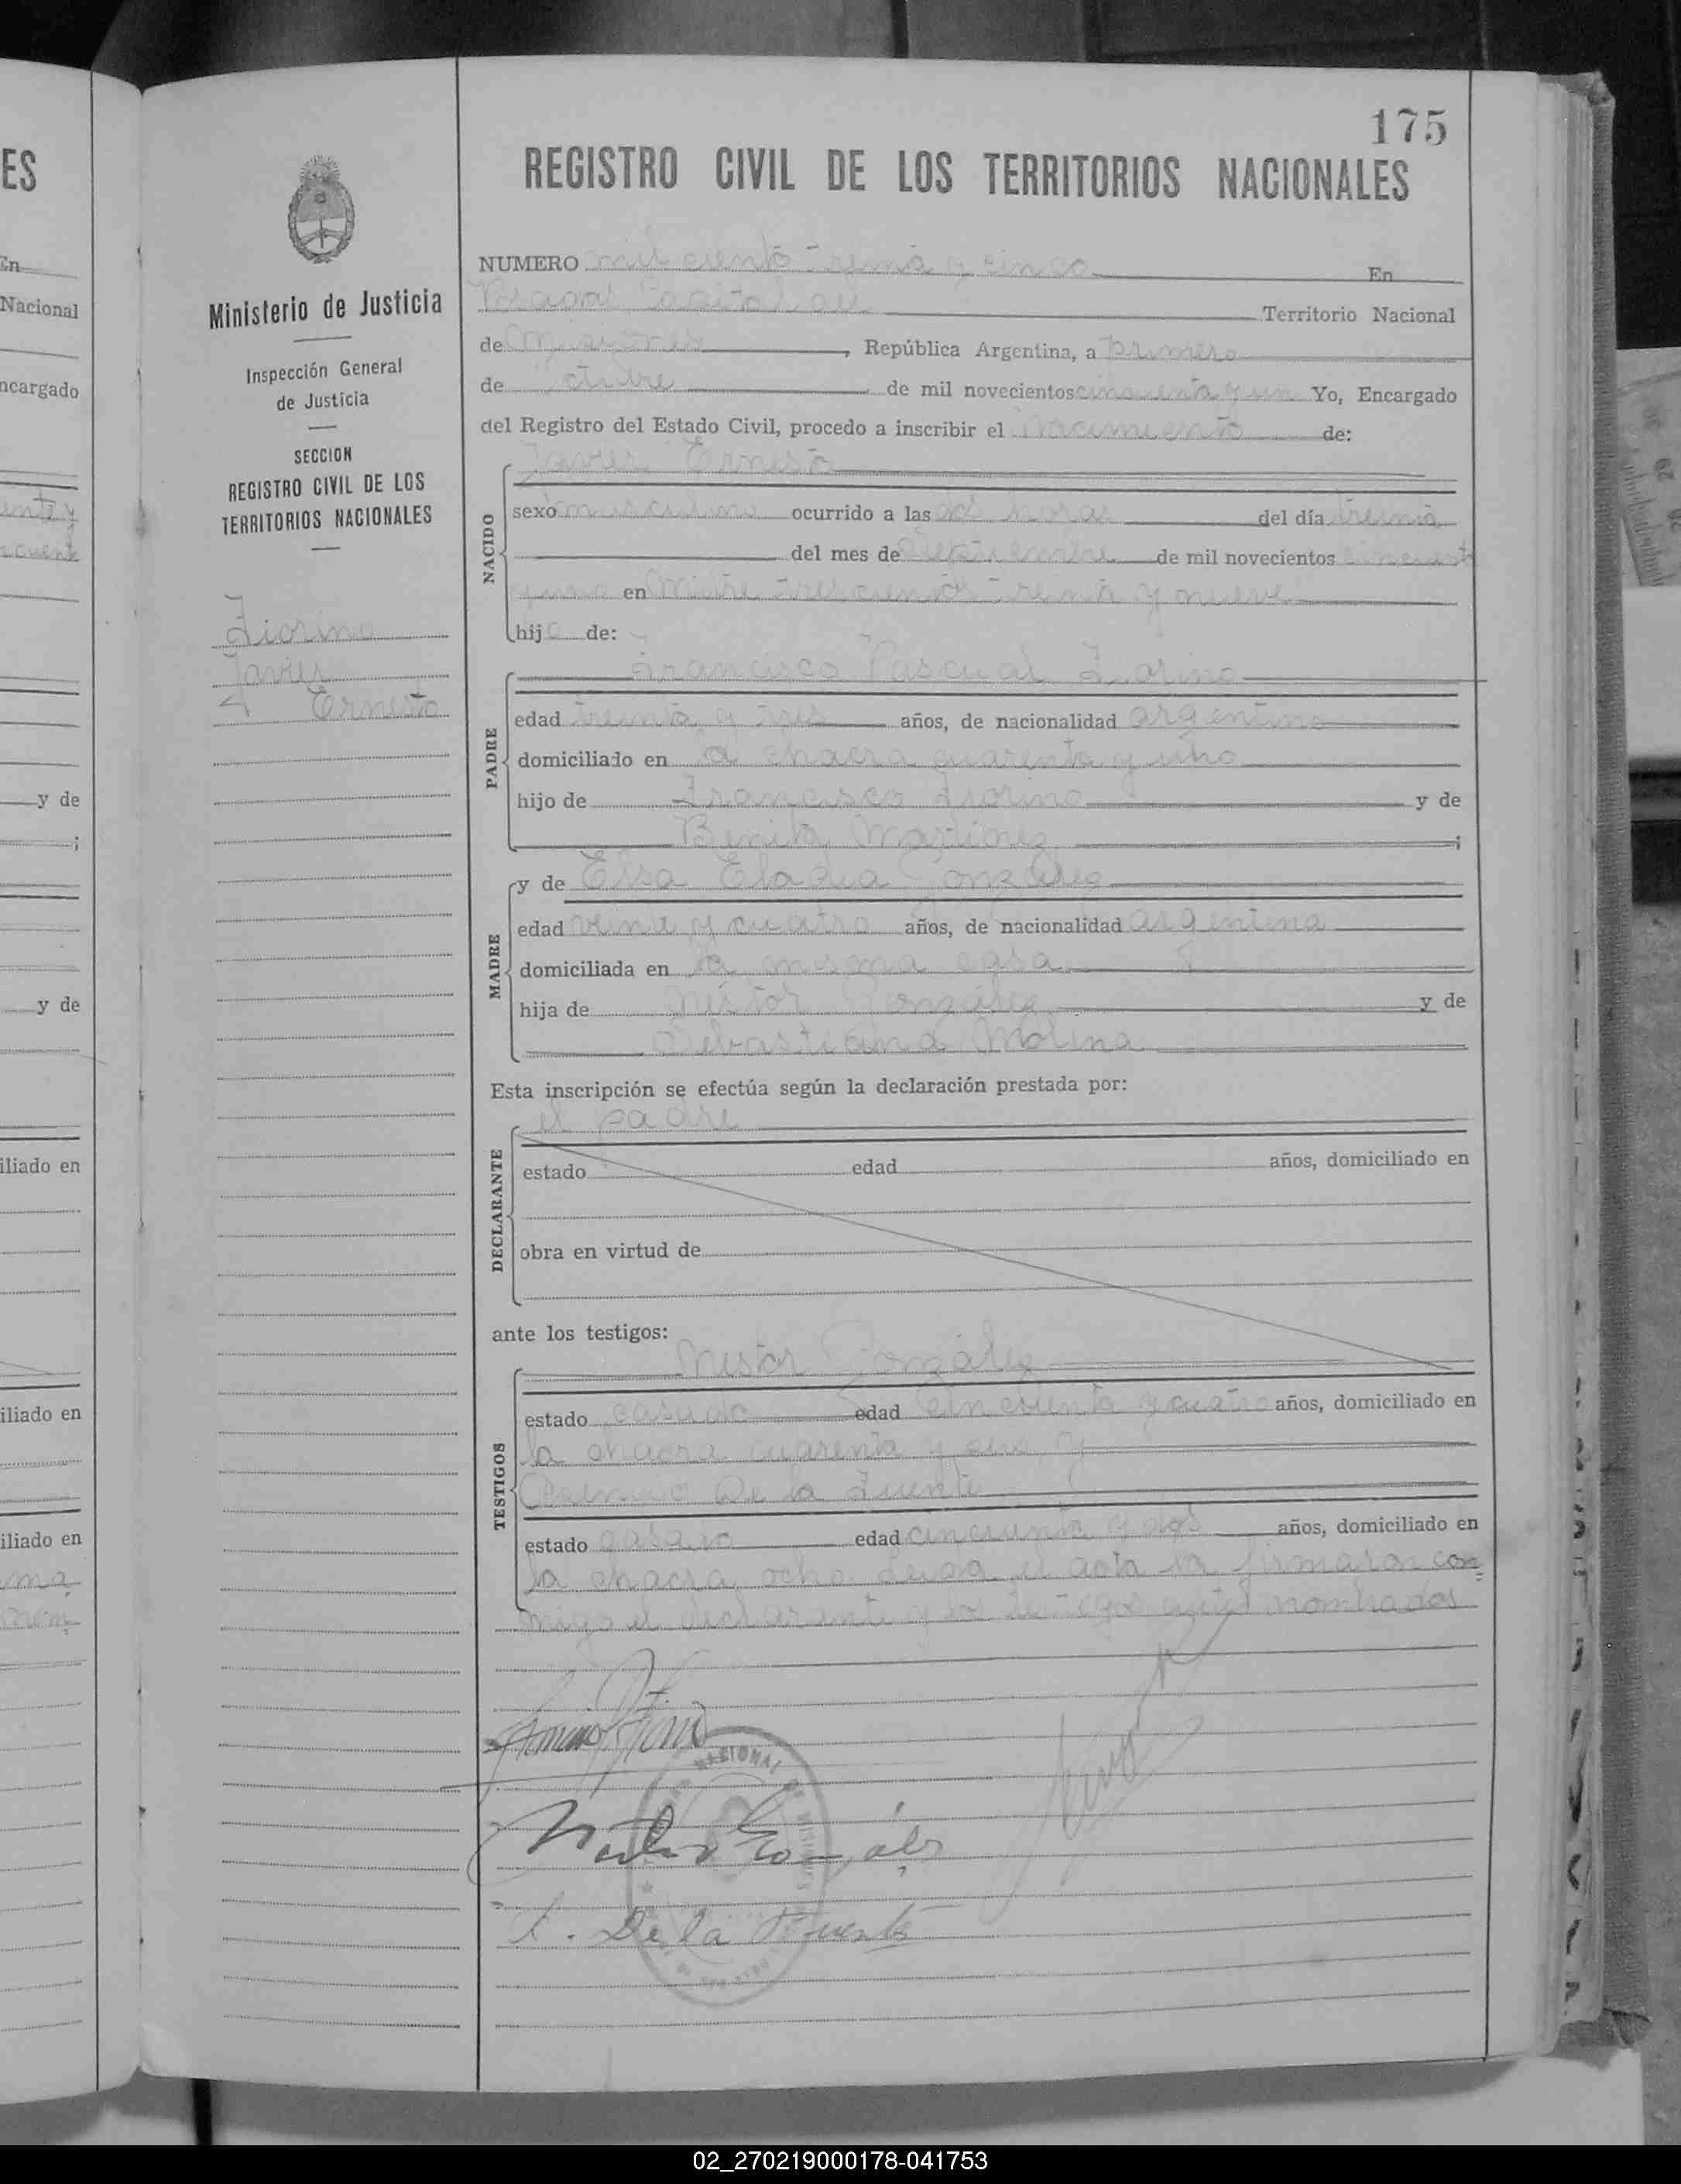 ES
En
Nacional
ncargado
y de
y de
iliado en
iliado en
iliado en
Ministerio de Justicia
Inspección General
de Justicia
SECCION
REGISTRO CIVIL DE LOS
TERRITORIOS NACIONALES
Fiorino
Javier
Ernesto
175
REGISTRO CIVIL DE LOS TERRITORIOS NACIONALES
NUMERO mil ciento treinta y cinco En
Posadas Capital del Territorio Nacional
de Misiones, República Argentina, a primero
de Octubre de mil novecientos cincuenta y un Yo, Encargado
del Registro del Estado Civil, procedo a inscribir el Nacimiento de:
Javier Ernesto
NACIDO
sexo masculino ocurrido a las dos horas del día treinta
del mes de Septiembre de mil novecientos cincuenta
y uno en Mitre trescientos treinta y nueve
hijo de:
Francisco Pascual Fiorino
PADRE
edad treinta y tres años, de nacionalidad argentino
domiciliado en la chacra cuarenta y uno
hijo de Francisco Fiorino y de
Benita Martínez;
MADRE
y de Elsa Eladia González
edad veinte y cuatro años, de nacionalidad argentina
domiciliada en la misma casa
hija de Néstor González y de
Sebastiana Molina
Esta inscripción se efectúa según la declaración prestada por:
el padre
DECLARANTE
estado edad años, domiciliado en
obra en virtud de
ante los testigos:
Nestor González
TESTIGOS
estado casado edad cincuenta y cuatro años, domiciliado en
la chacra cuarenta y uno y
De la Fuente
estado casado edad cincuenta y dos años, domiciliado en
la chacra ocho Leida el acta la firmaron con
migo el declarante y los testigos antes nombrados
Nestor González
A. De la Fuente
02_270219000178-041753